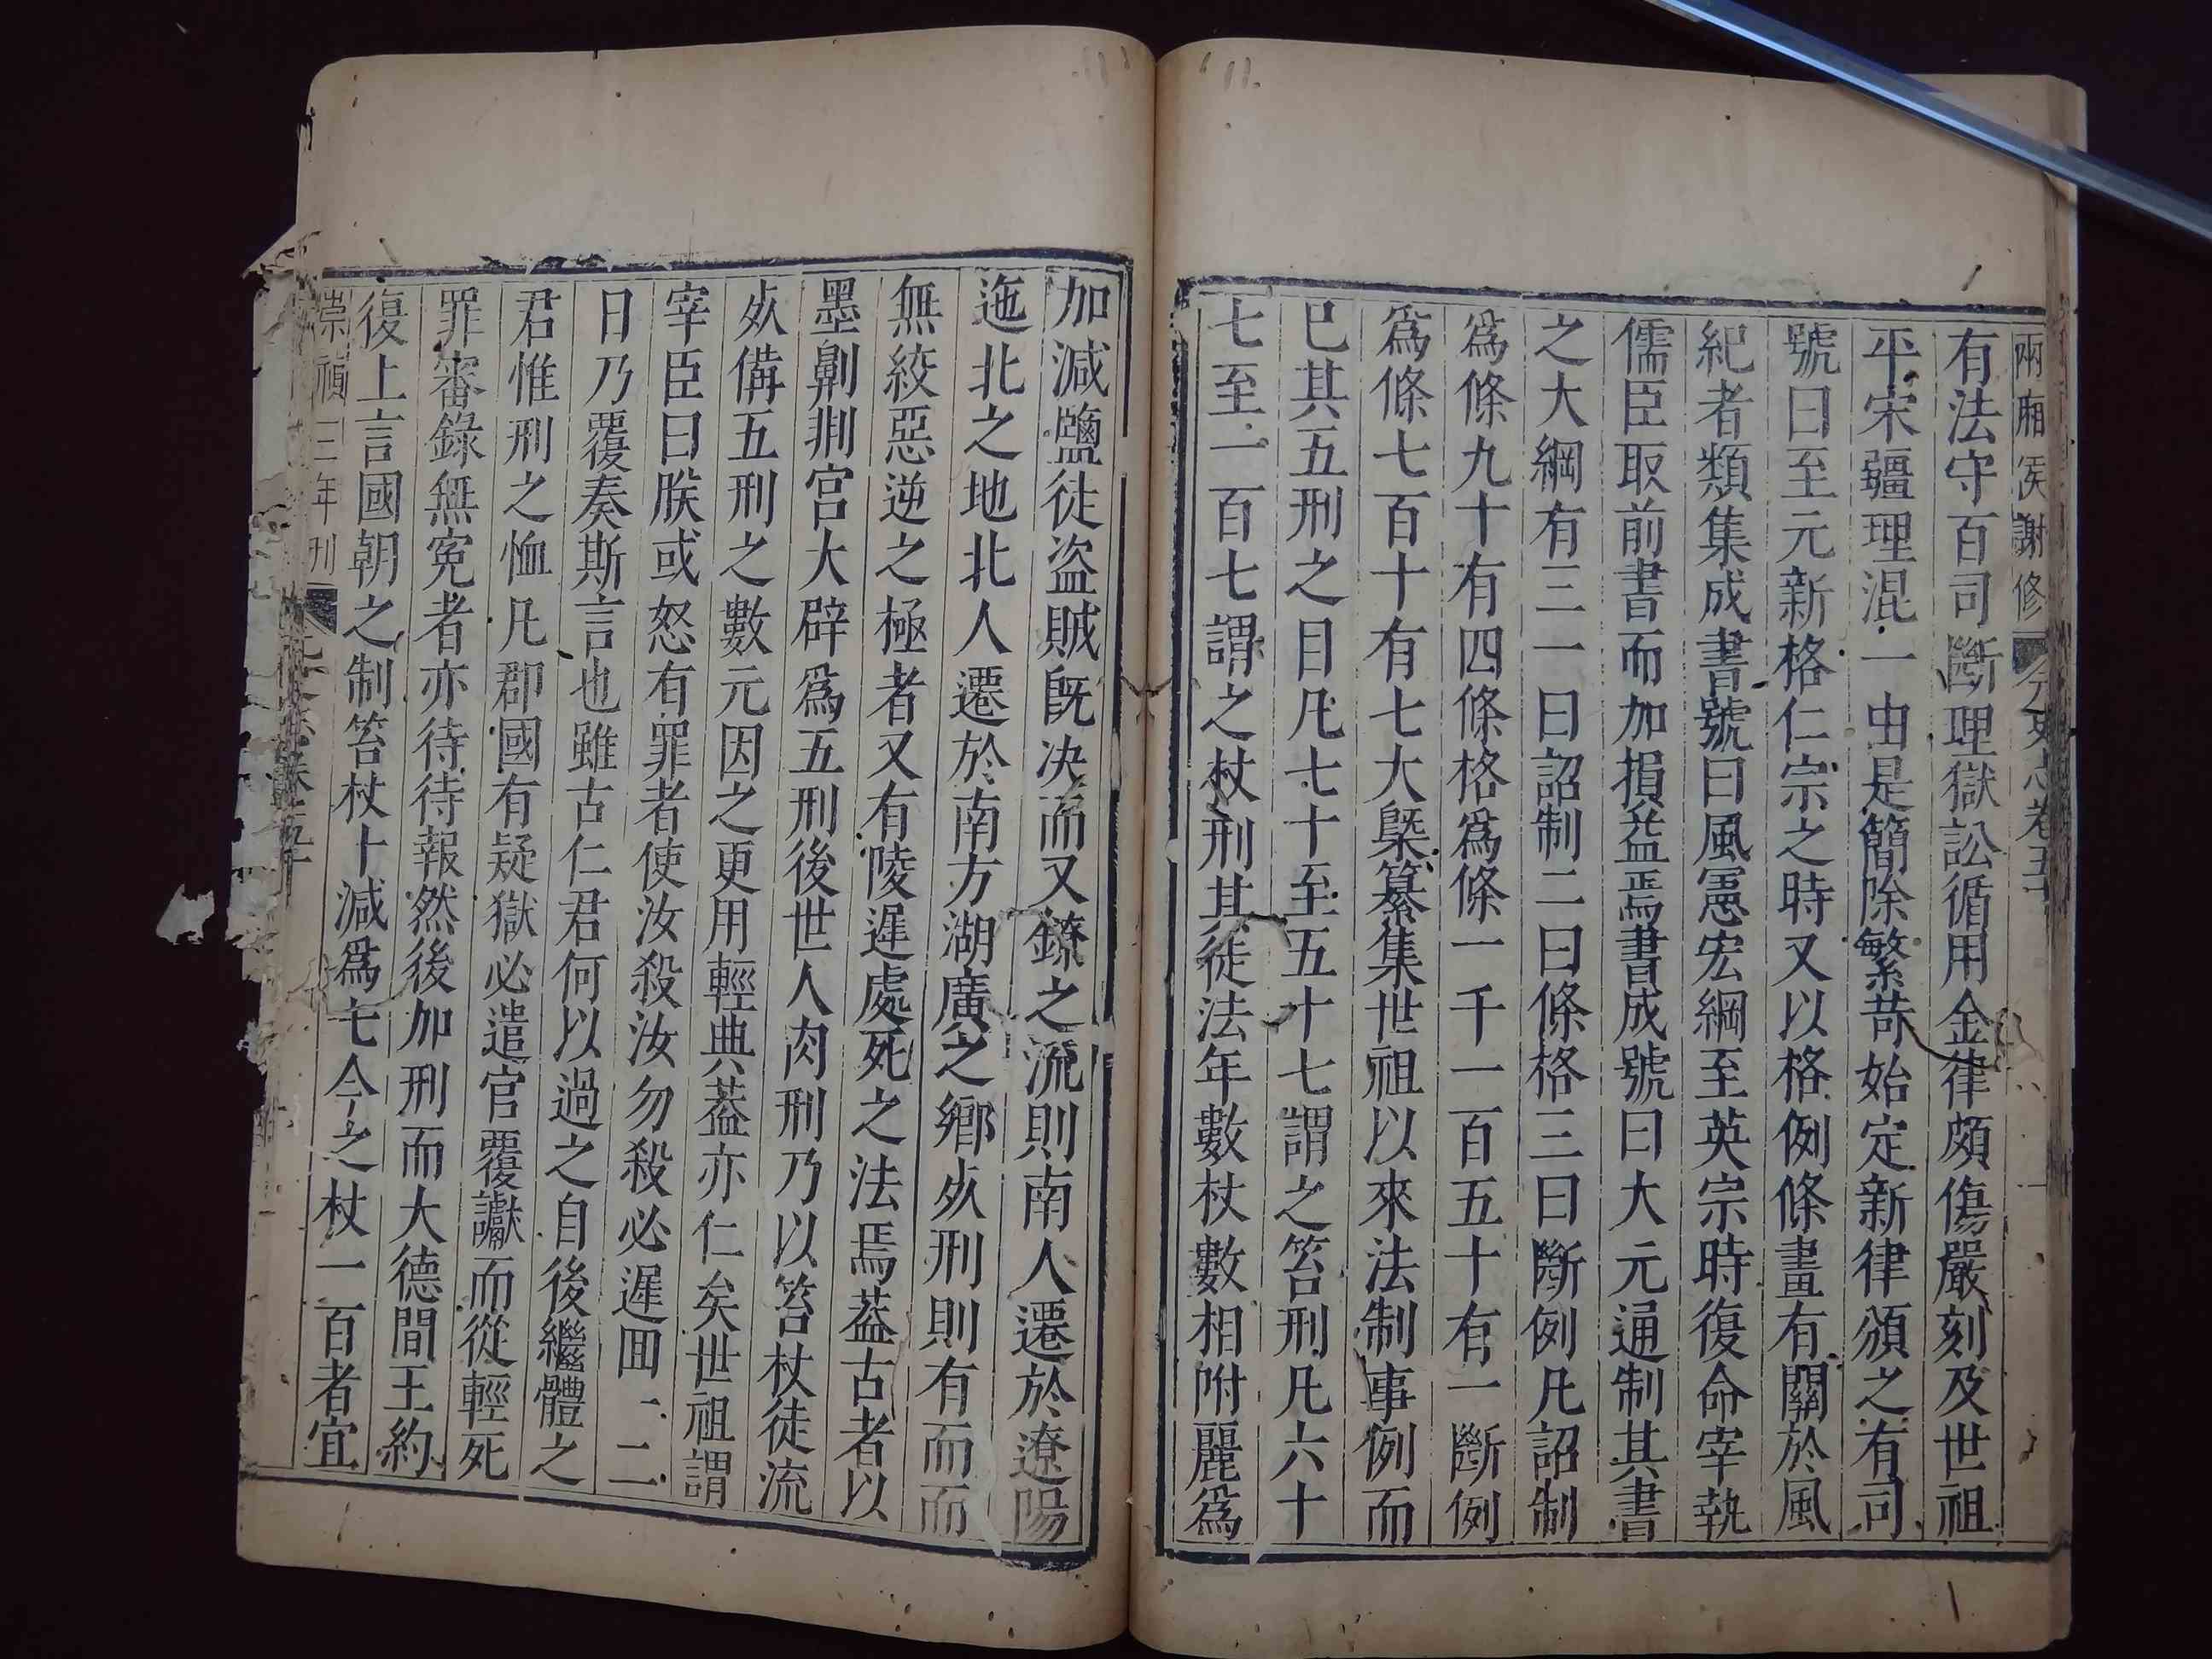 兩廂侯謝修
元史志卷五十
有法守百司斷理獄訟循用金律頗傷嚴刻及世祖
平宋疆理混一由是簡除繁苛始定新律頒之有司
號曰至元新格仁宗之時又以格例條畫有關於風
紀者類集成書號曰風憲宏綱至英宗時復命宰執
儒臣取前書而加損益焉書成號曰大元通制其書
之大綱有三一曰詔制二曰條格三曰斷例凡詔制
爲條九十有四條格爲條一千一百五十有一斷例
爲條七百十有七大槩纂集世祖以來法制事例而
已其五刑之目凡七十至五十七謂之笞刑凡六十
七至一百七謂之杖刑其徒法年數杖數相附麗爲
加減鹽徒盜賊旣決而又鐐之流則南人遷於遼陽
迤北之地北人遷於南方湖廣之鄉死刑則有而而
無絞惡逆之極者又有陵遲處死之法焉葢古者以
墨劓剕宫大辟爲五刑後世人肉刑乃以笞杖徒流
死備五刑之數元因之更用輕典葢亦仁矣世祖謂
宰臣曰朕或怒有罪者使汝殺汝勿殺必遲囬一二
日乃覆奏斯言也雖古仁君何以過之自後繼體之
君惟刑之恤凡郡國有疑獄必遣官覆讞而從輕死
罪審錄無寃者亦待待報然後加刑而大德間王約
復上言國朝之制笞杖十減爲七今之杖一百者宜
崇禎三年刊